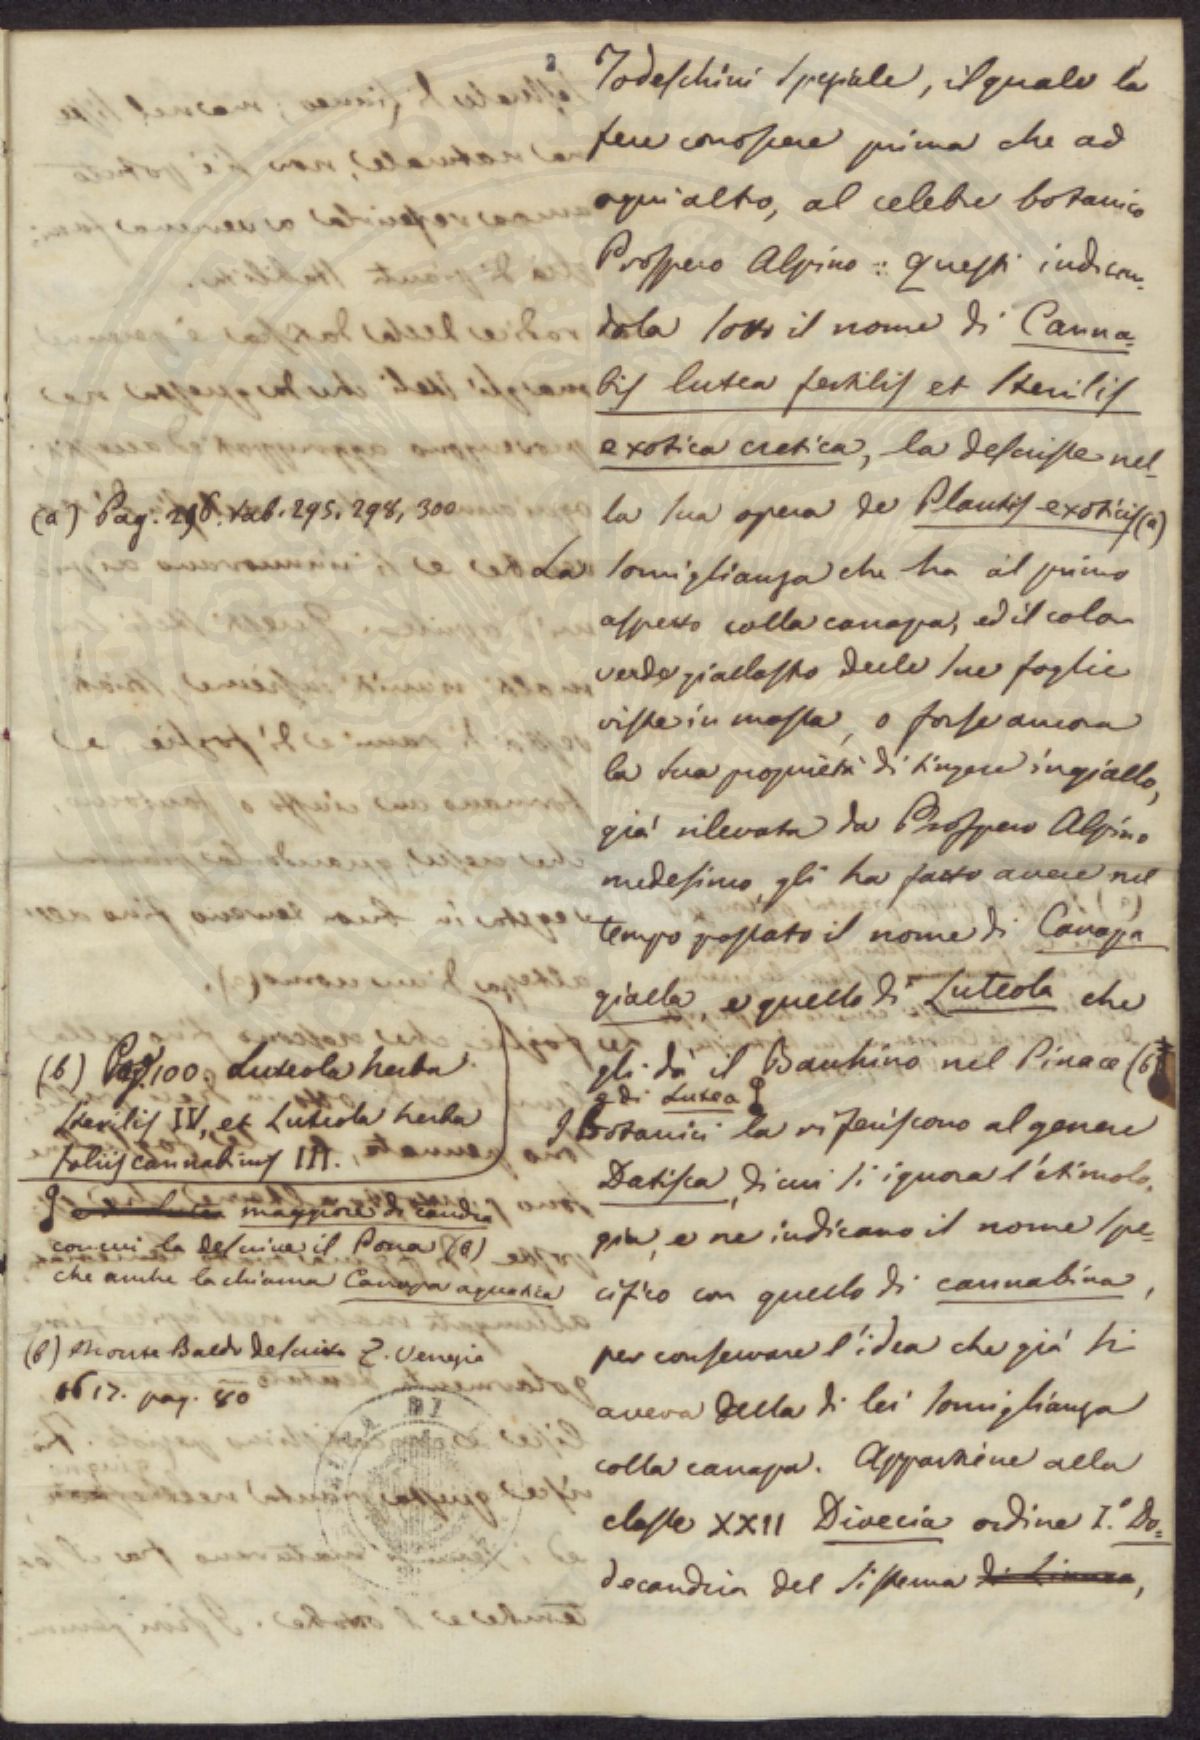 2
Todeschini Speziale, il quale la
fece conoscere prima che ad
ogni altro, al celebre botanico
Prospero Alpino: questi indican-
dola sotto il nome di Canna=
bis lutea fertilis et sterilis
exotica cretica, la descrisse nel-
la sua opera de Plantis exoticis (a)
La somiglianza che ha al primo
aspetto colla canapa, ed il color
verde giallastro delle sue foglie
viste in massa, o forse ancora
la sua proprietà di tingere in giallo,
già rilevata da Prospero Alpino
medesimo, gli ha fatto avere nel
tempo passato il nome di Canapa
gialla, e quello di Luteola che
gli dà il Bauhino nel Pinace (b)
e di Lutea
I Botanici la riferiscono al genere
Datisca, di cui si ignora l'etimolo-
gia, e ne indicano il nome spe=
cifico con quello di cannabina,
per conservare l'idea che già si
aveva della di lei somiglianza
colla canapa. Appartiene alla
classe XXII Dioecia ordine I.º Do=
decandria del sistema di Linneo,
(a) Pag. 298. tab. 295, 298, 300
(b) Pag. 100. Luteola herba
sterilis IV, et Luteola herba
foliis cannabinis III.
e di Lutea maggiore di candia
con cui la descrive il Pona (β)
che anche la chiama Canapa aquatica
(β) Monte Baldo descritto Z. Venezia
1617. pag. 80